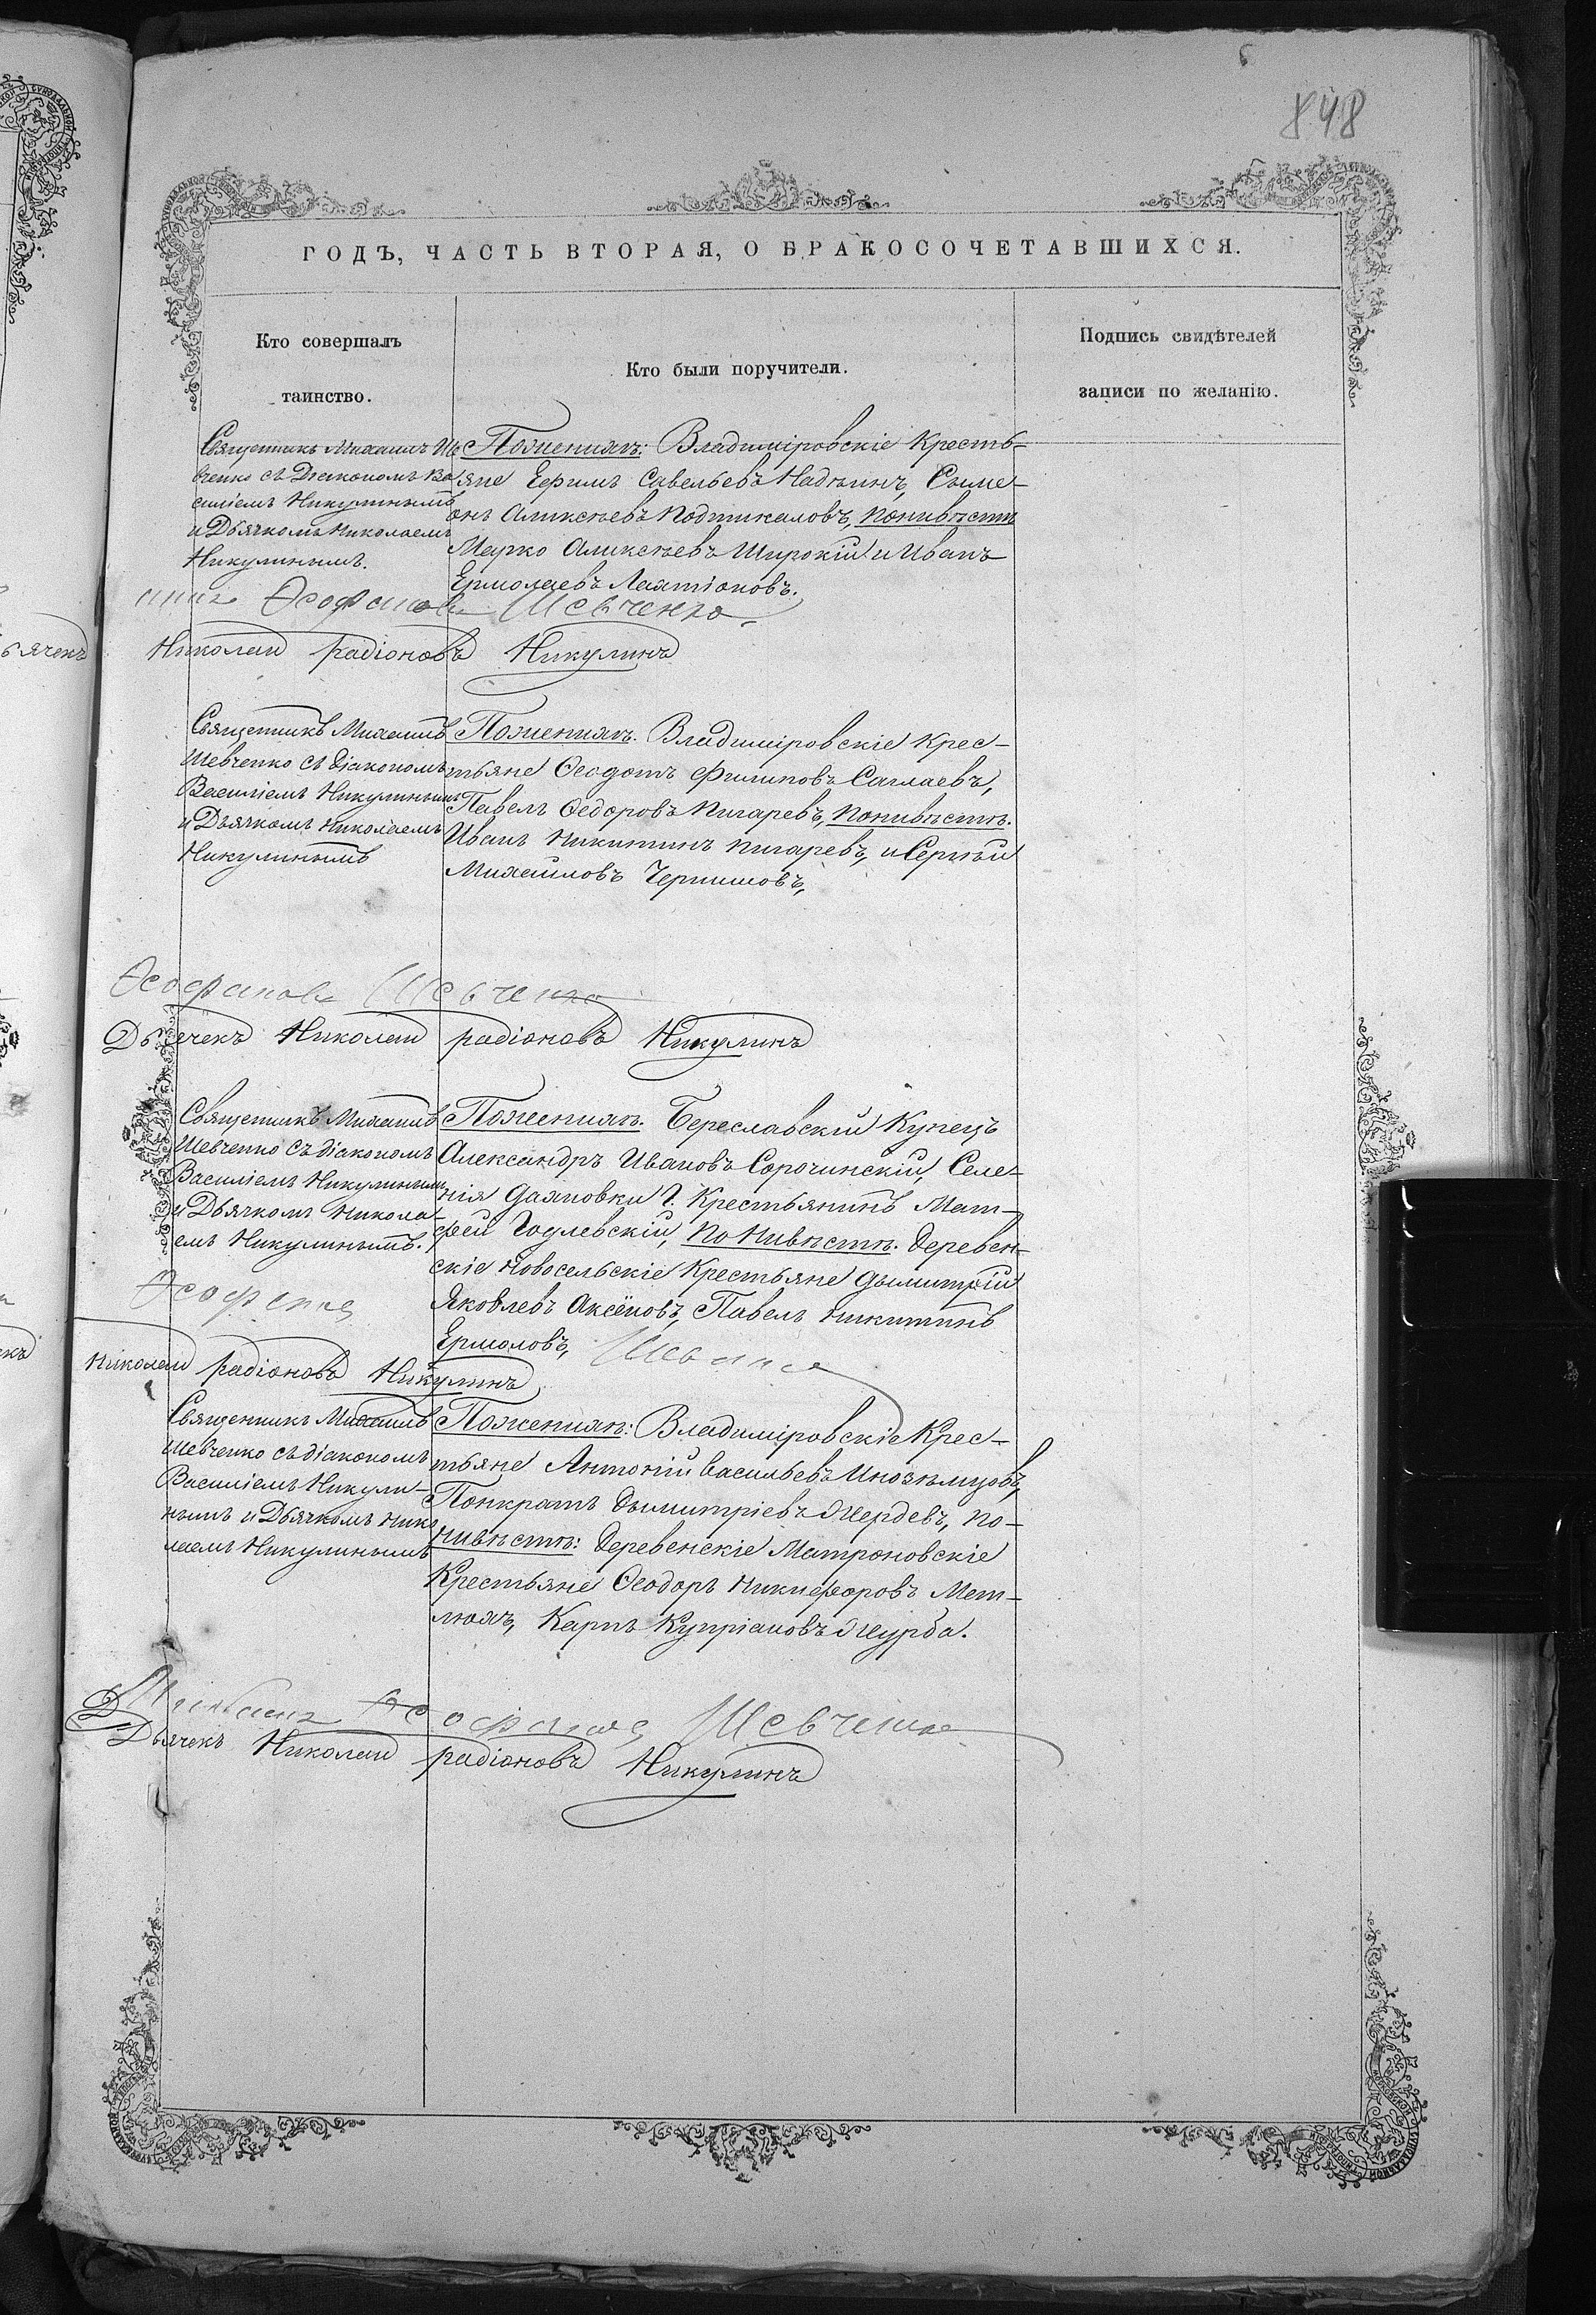 848
ГОДЪ, ЧАСТЬ ВТОРАЯ, О БРАКОСОЧЕТАВШИХСЯ.
Кто совершалъ
таинство.
Кто были поручители.
Подпись свидѣтелей
записи по желанію.
Священникъ Михаилъ Ше
вченко съ Діакономъ Ва
силіемъ Никулинымъ
и Дьячкомъ Николаемъ
Никулинымъ.
По женихѣ: Владиміровскіе Кресть-
яне Ефимъ Савельевъ Надѣинъ, Сыме-
онъ Аликсѣевъ Подтикаловъ, по нивѣстѣ
Марко Аликсѣевъ Широкій и Иванъ
Ермолаевъ Лахтіоновъ.
Ѳеофановъ Шевченко
Николай радіоновъ Никулинъ
Священникъ Михаилъ
Шевченко съ діакономъ
Василіемъ Никулинымъ
и Дьячкомъ Николаемъ
Никулинымъ
По женихѣ. Владиміровскіе Крес-
тьяне Ѳеодотъ Филиповъ Саглаевъ,
Павелъ Ѳедоровъ Пигаревъ, по нивѣстѣ.
Иванъ Никитинъ Пигаревъ, и Сергѣй
Михайловъ Чернышовъ,
Ѳеофановъ Шевченко
Дьячекъ Николай радіоновъ Никулинъ
Священникъ Михаилъ
Шевченко съ діакономъ
Василіемъ Никулинымъ
и Дьячкомъ Никола-
емъ Никулинымъ.
По женихѣ. Береславскій Купецъ
Александръ Ивановъ Сорочинскій, Селе-
нія Крестьянинъ Мат-
фей Годлевскій, По Нивѣстѣ. Деревен-
скіе Новосельскіе Крестьяне Дымитрій
Яковлевъ Аксёновъ, Павелъ Никитинъ
Ермоловъ,
Николай радіоновъ Никулинъ
Священникъ Михаилъ
Шевченко съ діакономъ
Василіемъ Никули-
нымъ и Дьячкомъ Нико
лаемъ Никулинымъ
По женихѣ: Владиміровскіе Крес-
тьяне Антоній Васильевъ Инозѣмцовъ,
Понкратъ Дымитріевъ Жердевъ, по-
нивѣстѣ: Деревенскіе Матроновскіе
Крестьяне Ѳеодоръ Никифоровъ Мет-
люхъ, Карпъ Купріановъ Журба.
Шевченко
Дьячекъ Николай радіоновъ Никулинъ